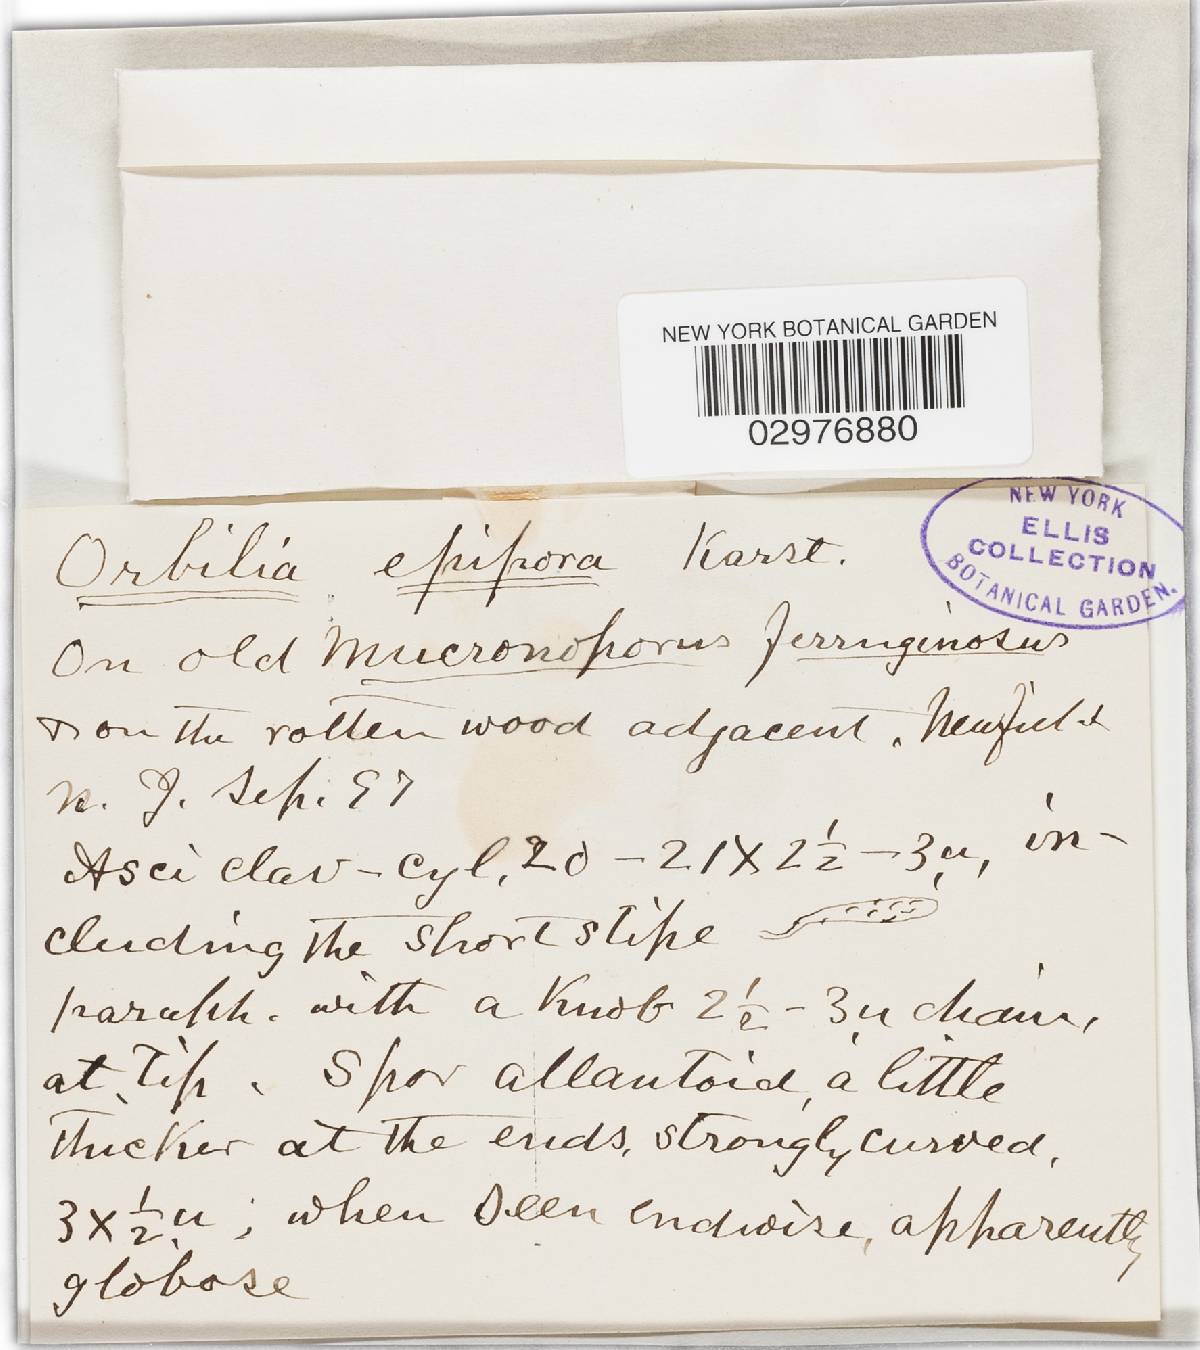 NEW YORK BOTANICAL GARDEN
02976880
NEW YORK
ELLIS
COLLECTION
BOTANICAL GARDEN.
Orbilia epipora Karst.
On old Mucronoporus ferruginosus
& on the rotten wood adjacent. Newfield
N. J. Sep. 97
Asci clav-cyl, 20-21 X 2½-3u, in-
cluding the short stipe
paraph. with a Knob 2½-3u diam,
at tip. Spor allantoid, a little
thicker at the ends, strongly curved,
3 x ½ u; when seen endwise, apparently
globose